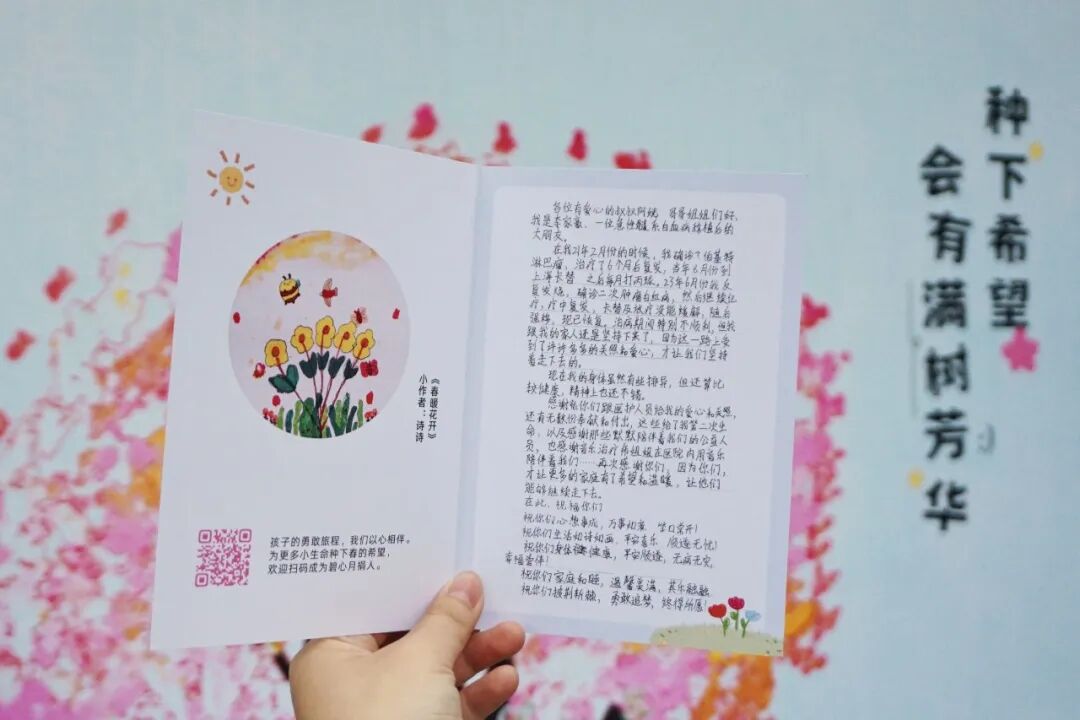 种下希望
会有满树芳华
《春暖花开》
小作者：诗诗
孩子的勇敢旅程，我们以心相伴。
为更多小生命种下春的希望，
欢迎扫码成为碧心月捐人。
各位有爱心的叔叔阿姨、哥哥姐姐们好，
我是李家豪、一位急性髓系白血病移植后的
大朋友。
在我21年2月份的时候，我确诊了伯基特
淋巴瘤，治疗了6个月后复发，当年8月份到
上海卡替 之后每月打丙球。23年6月份我反
复发烧，确诊二次肿瘤白血病，然后继续化
疗，疗中复发，卡替及放疗没能缓解，随后
强移，现已恢复。治病期间特别不顺利，但我
跟我的家人还是坚持下来了，因为这一路上受
到了许许多多的关照和爱心，才让我们坚持
着走下去的。
现在我的身体虽然有些排异，但还算比
较健康，精神上也还不错。
感谢你们跟医护人员给我的爱心和关照，
还有无数份奉献和付出，这些给了我第二次生
命，以及感谢那些默默陪伴着我们的公益人
员，也感谢音乐治疗师姐姐在医院内用音乐
陪伴着我们……再次感谢你们，因为你们，
才让更多的家庭有了希望和温暖，让他们
能够继续走下去。
在此，祝福你们
祝你们心想事成，万事如意 笑口常开！
祝你们生活如诗如画，平安喜乐 顺遂无忧！
祝你们身体健康，平安顺遂，无病无灾，
幸福安伴！
祝你们家庭和睦，温馨美满，其乐融融
祝你们披荆斩棘，勇敢追梦，终得所愿！